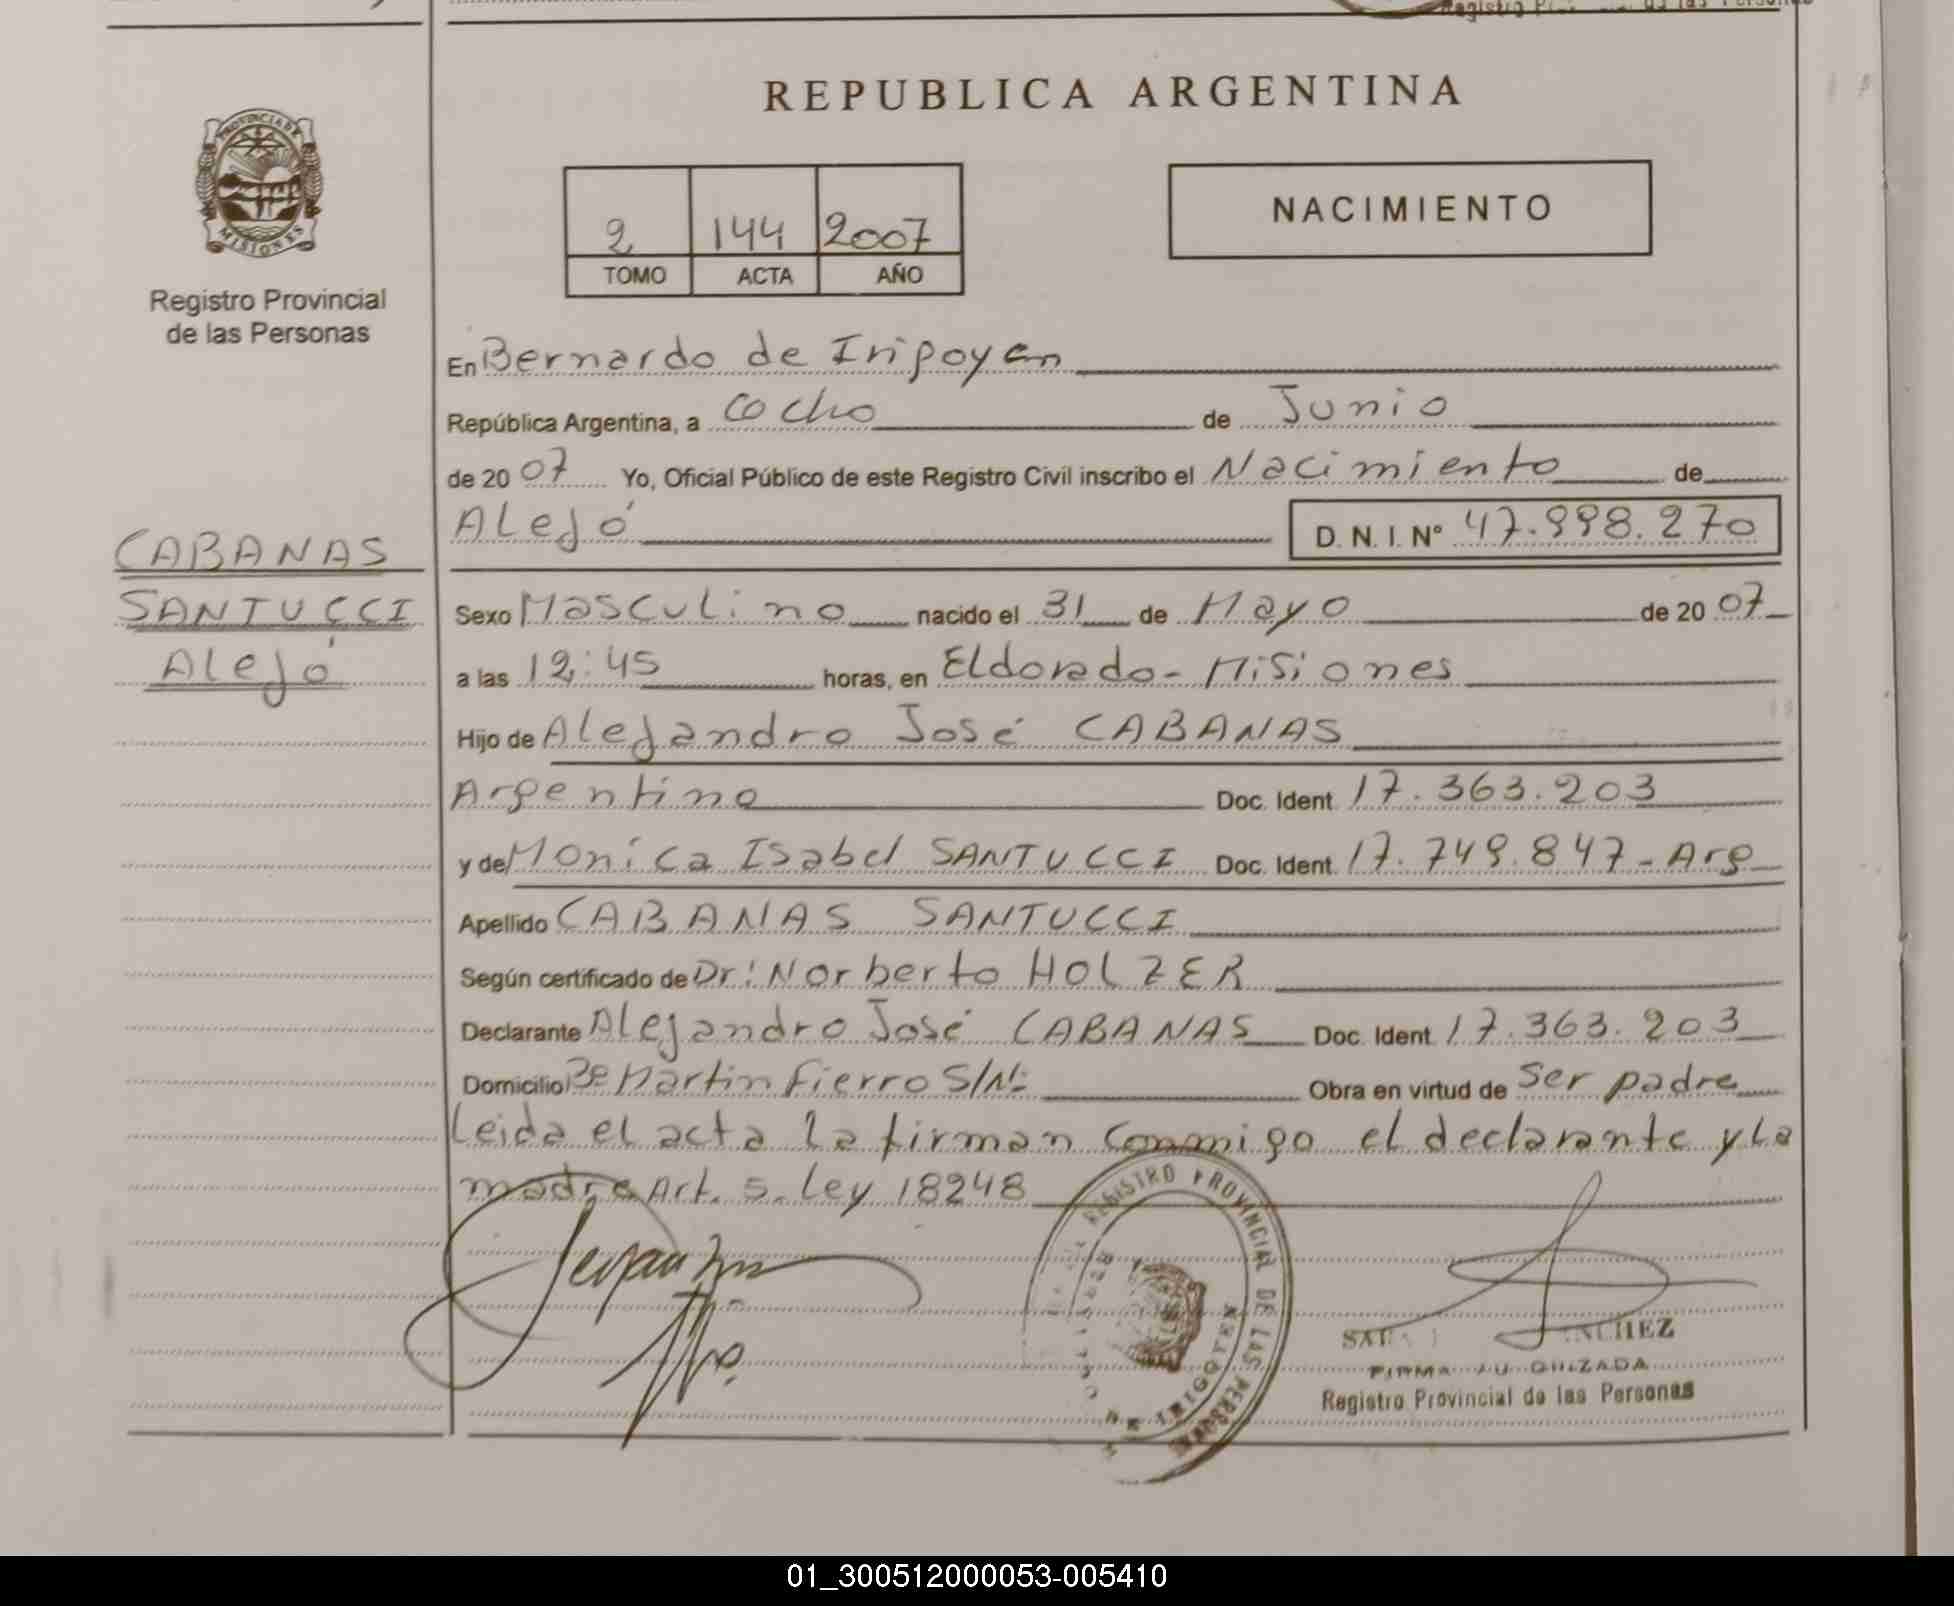 REPUBLICA ARGENTINA
PROVINCIA DE
MISIONES
Registro Provincial
de las Personas
NACIMIENTO
2 144 2007
TOMO ACTA AÑO
En Bernardo de Irigoyen
República Argentina, a ocho de Junio
de 20 07 Yo, Oficial Público de este Registro Civil inscribo el Nacimiento de
Alejó D. N. I. Nº 47.998.270
CABANAS
SANTUCCI
Alejó
Sexo Masculino nacido el 31 de Mayo de 20 07
a las 12:45 horas, en Eldorado - Misiones
Hijo de Alejandro José CABANAS
Argentino Doc. Ident. 17.363.203
y de Monica Isabel SANTUCCI Doc. Ident. 17.749.847 - Arg
Apellido CABANAS SANTUCCI
Según certificado de Dr: Norberto HOLZER
Declarante Alejandro José CABANAS Doc. Ident. 17.363.203
Domicilio Bº Martin Fierro S/Nº Obra en virtud de Ser padre
Leida el acta la firman conmigo el declarante y La
madre Art. 5. Ley 18248
REGISTRO PROVINCIAL DE LAS PERSONAS
IRIGOYEN
Registro Provincial de las Personas
01_300512000053-005410